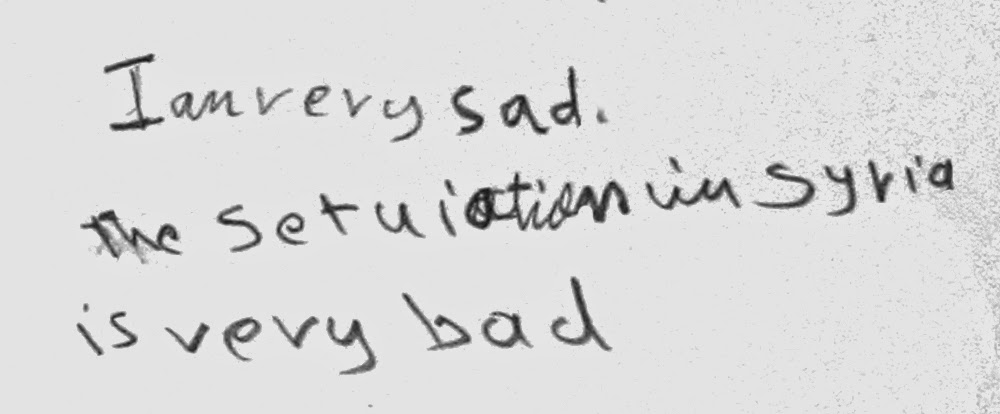 I am very sad.
the setuiation in syria
is very bad